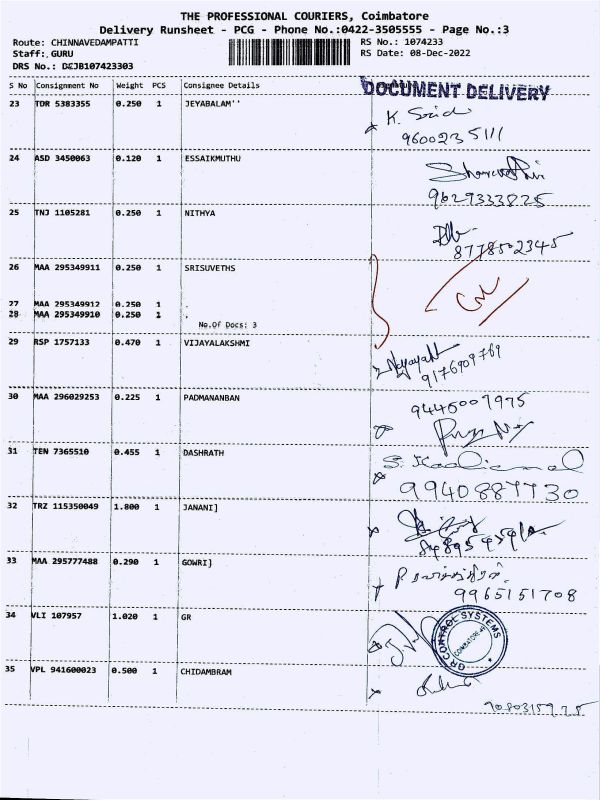 THE PROFESSIONAL COURIERS, Coimbatore
Delivery Runsheet - PCG - Phone No.:0422-3505555 - Page No.:3
Route: CHINNAVEDAMPATTI RS No.: 1074233
Staff: GURU RS Date: 08-Dec-2022
DRS No.: DEJB107423303
S No Consignment No Weight PCS Consignee Details
DOCUMENT DELIVERY
23 TDR 5383355 0.250 1 JEYABALAM''
K.
9600235111
24 ASD 3450063 0.120 1 ESSAIKMUTHU
9629333825
25 TNJ 1105281 0.250 1 NITHYA
8778502345
26 MAA 295349911 0.250 1 SRISUVETHS
27 MAA 295349912 0.250 1 .
28 MAA 295349910 0.250 1 .
No.Of Docs: 3
29 RSP 1757133 0.470 1 VIJAYALAKSHMI
9176909769
30 MAA 296029253 0.225 1 PADMANANBAN
9445007975
31 TEN 7365510 0.455 1 DASHRATH
S.
9940887730
32 TRZ 115350049 1.800 1 JANANI]
33 MAA 295777488 0.290 1 GOWRI)
9965151708
34 VLI 107957 1.020 1 GR
GR CONTROL SYSTEMS
35 VPL 941600023 0.500 1 CHIDAMBRAM